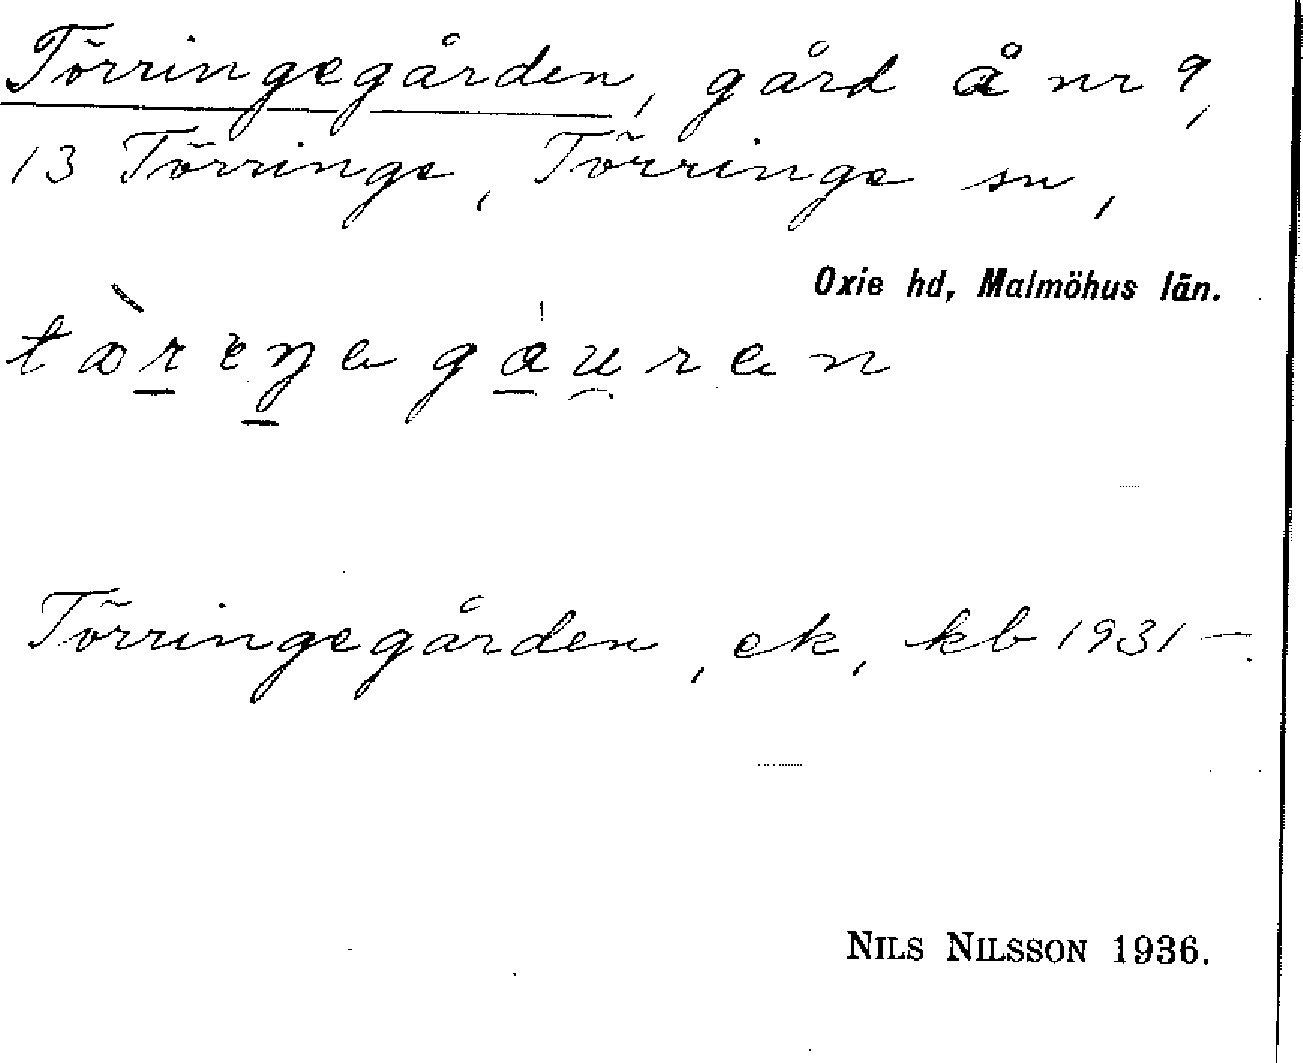 Törringegården, gård å nr 9,
13 Törringe, Törringe sn,
Oxie hd, Malmöhus län.
Törringegården, ek, kb 1931 –.
NILS NILSSON 1936.